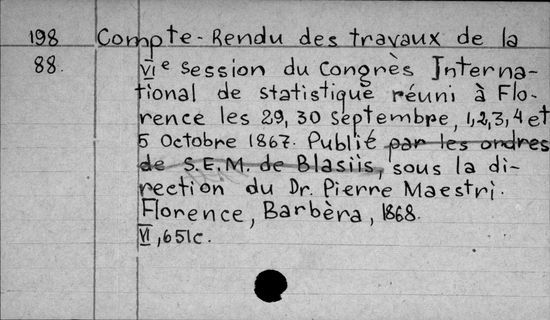 198 Compte-Rendu des travaux de la
88. VIe Session du Congrès Interna-
tional de statistique réuni à Flo-
rence les 29, 30 Septembre, 1,2,3,4 et
5 Octobre 1867. Publié par les ordres
de S.E.M. de Blasiis, sous la di-
rection du Dr. Pierre Maestri.
Florence, Barbèra, 1868.
VI, 651c.